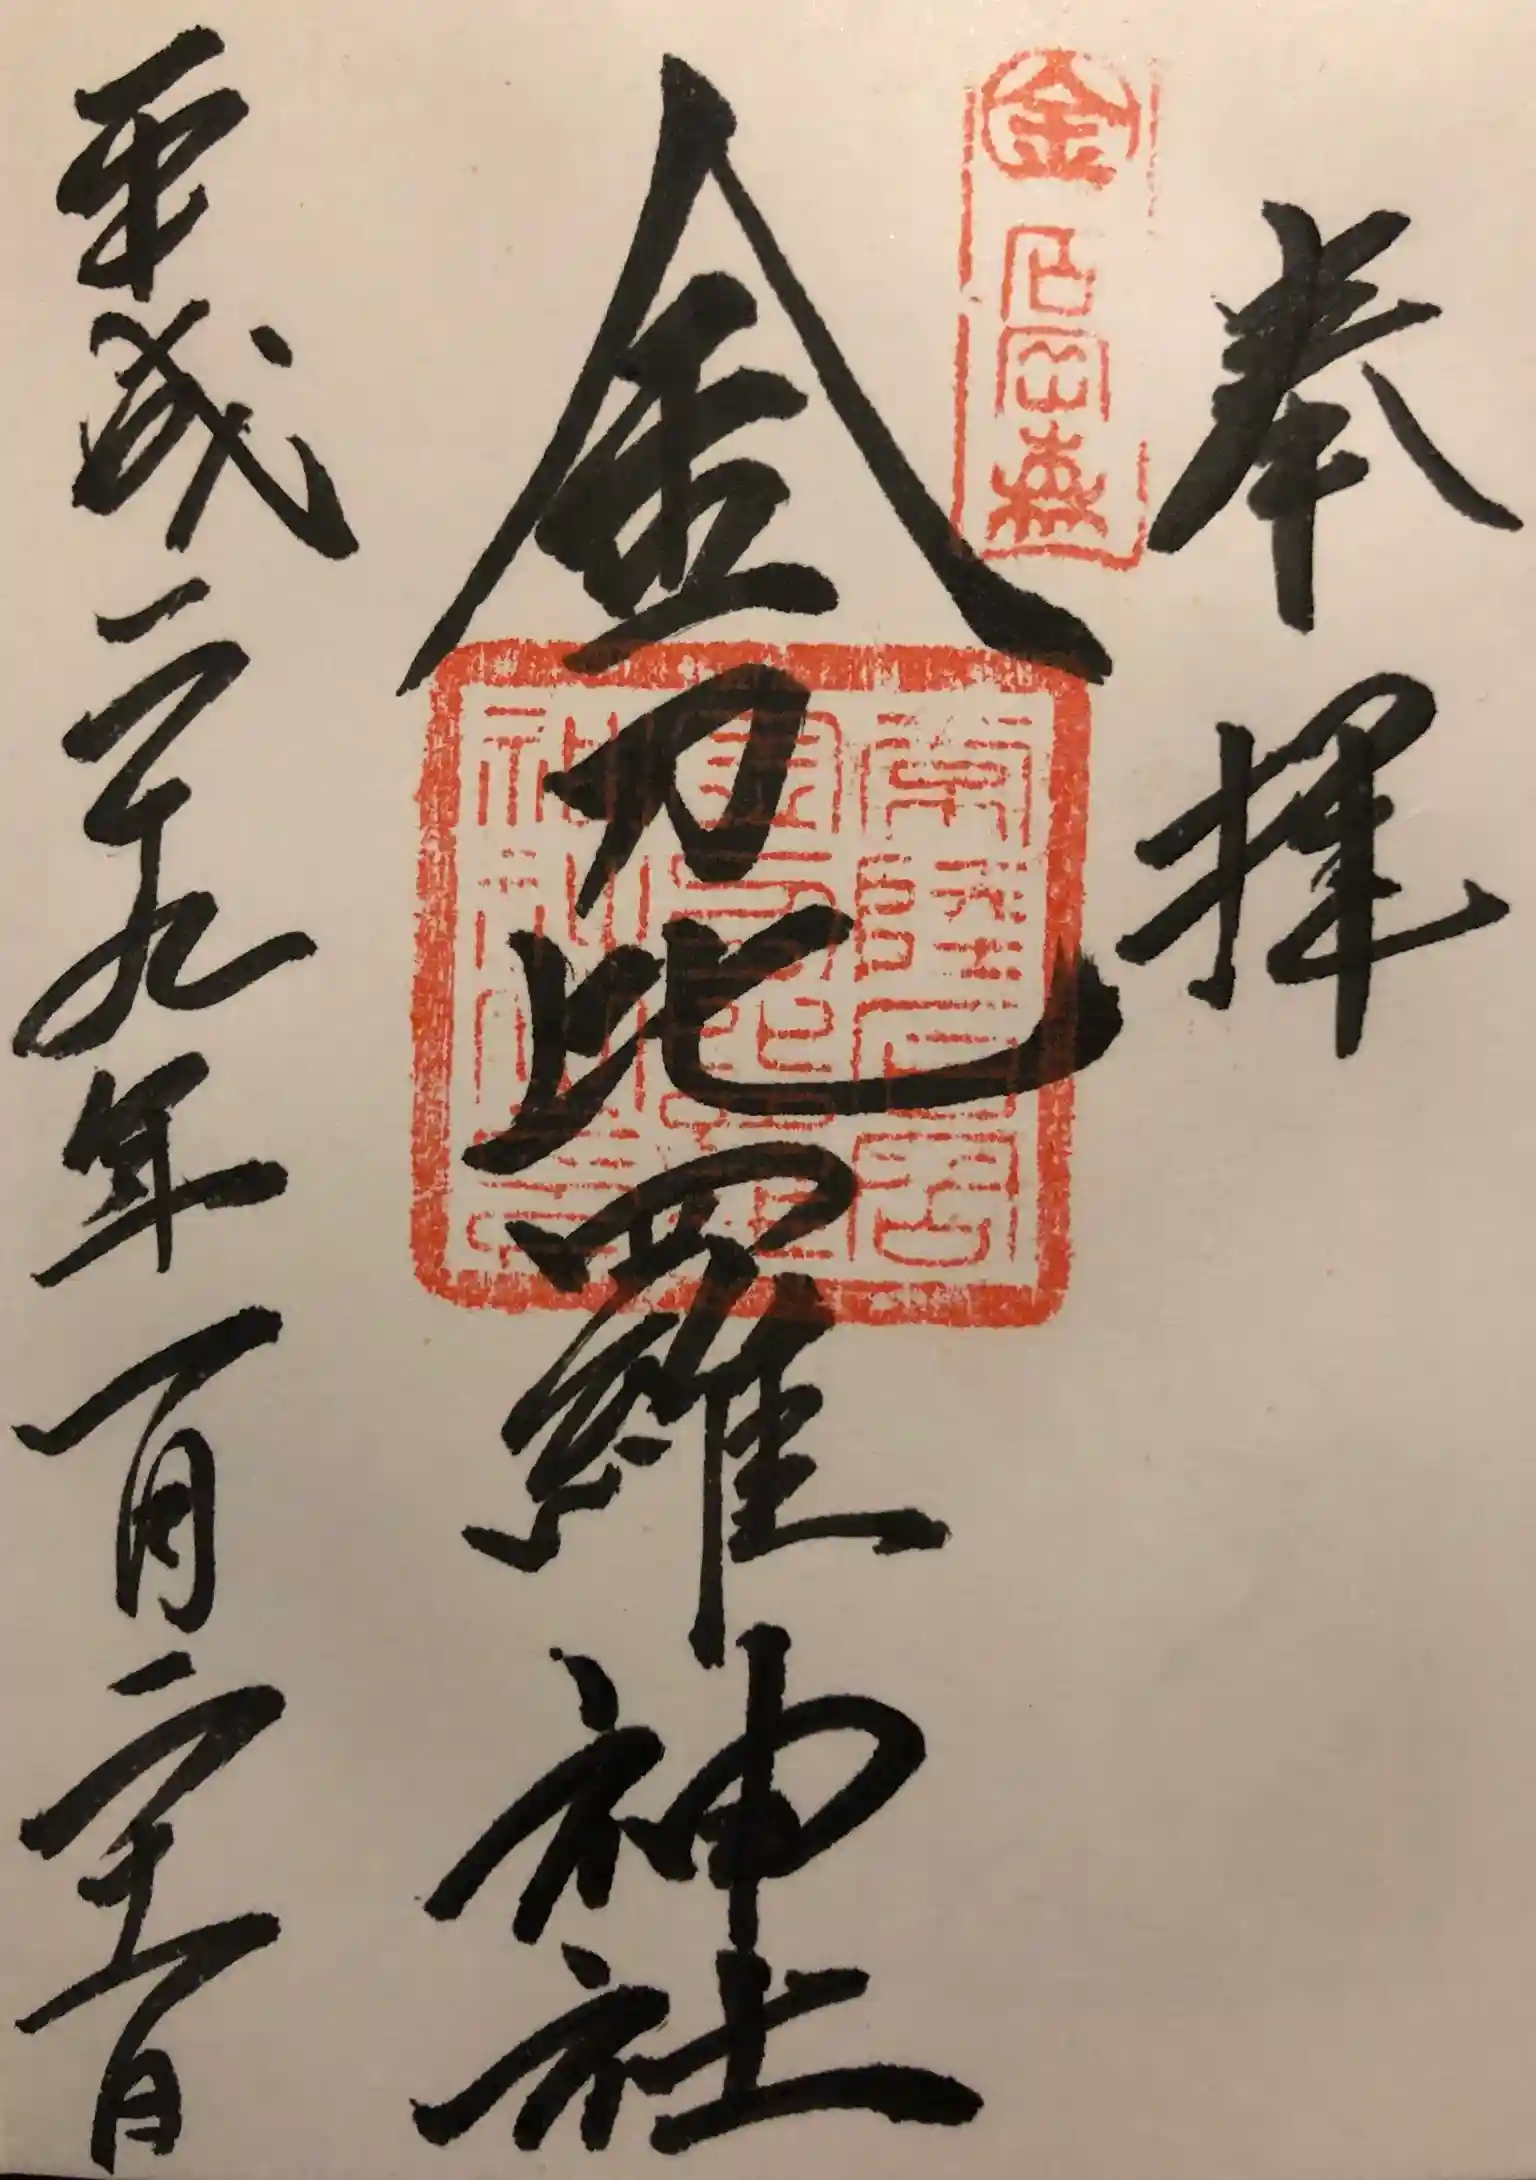 奉拝
金刀比羅神社
平成二十九年一月二十二日
金